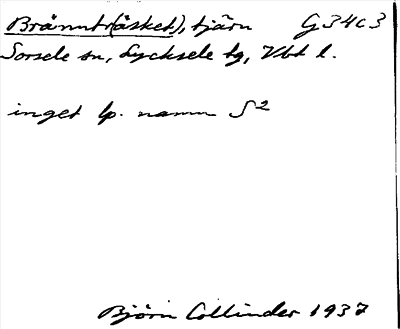 Brännträsket), tjärn G34c3
Sorsele sn, Lycksele tg, Vbt l.
inget lp. namn S²
Björn Collinder 1937